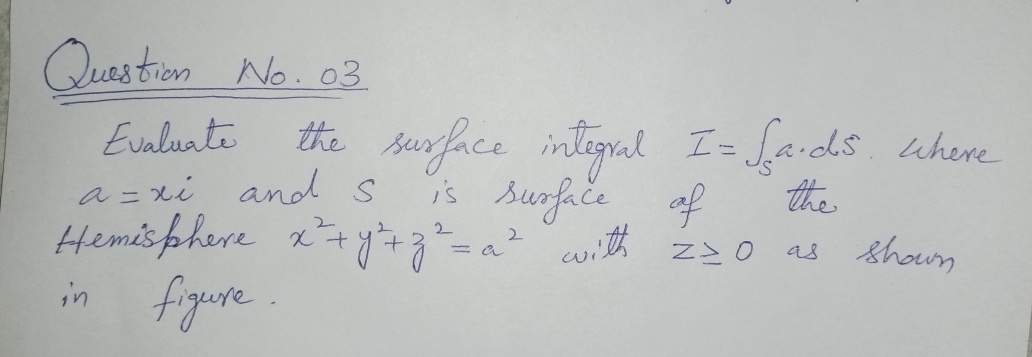 Question No. 03
Evaluate the surface integral I = ∫ₛ a·ds. where
a = xi and S is surface of the
Hemisphere x²+y²+z²=a² with z≥0 as shown
in figure.